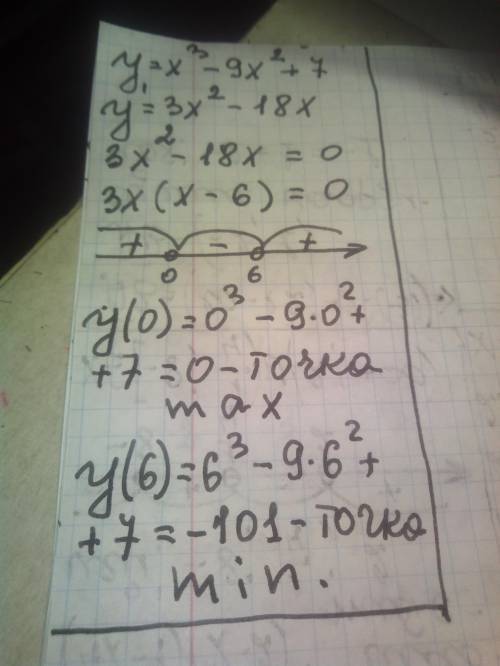 y = x³ - 9x² + 7
y' = 3x² - 18x
3x² - 18x = 0
3x(x - 6) = 0
+ - +
0 6
y(0) = 0³ - 9·0² +
+ 7 = 0 - точка
max
y(6) = 6³ - 9·6² +
+ 7 = -101 - точка
min.